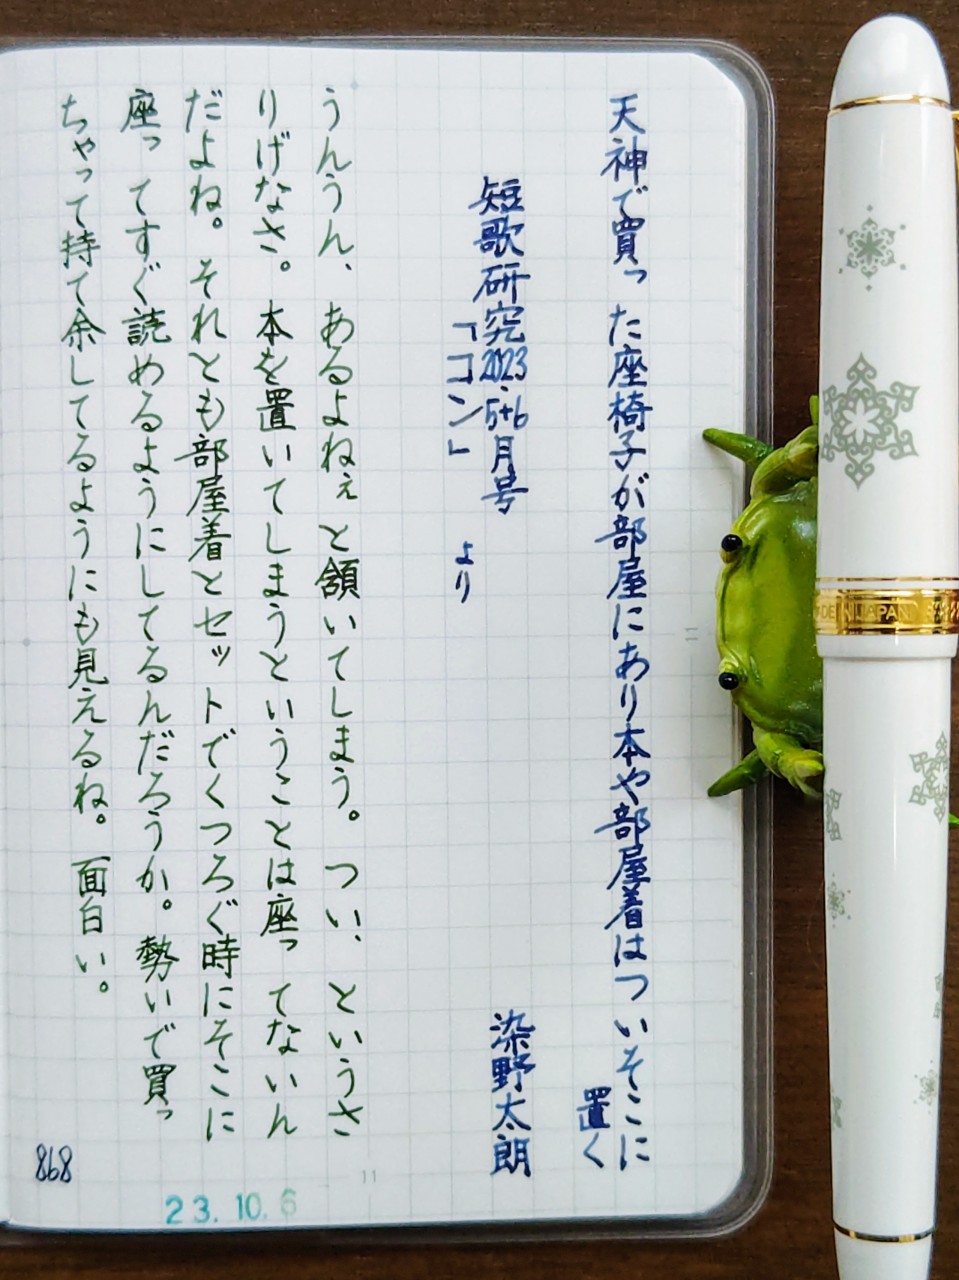 天神で買った座椅子が部屋にあり本や部屋着はついそこに
置く
短歌研究2023.5+6月号
「コン」より
染野太朗
うんうん、あるよねぇと頷いてしまう。つい、というさ
りげなさ。本を置いてしまうということは座ってないん
だよね。それとも部屋着とセットでくつろぐ時にそこに
座ってすぐ読めるようにしてるんだろうか。勢いで買っ
ちゃって持て余してるようにも見えるね。面白い。
868
23.10.6
11
11
MADE IN JAPAN